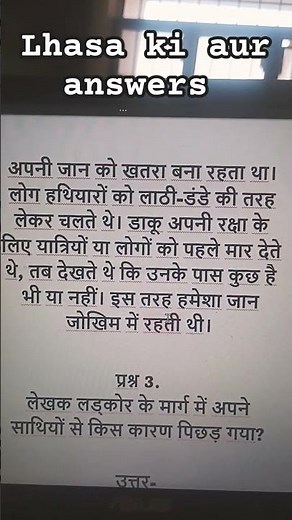 Lhasa ki aur
answers
...
अपनी जान को खतरा बना रहता था।
लोग हथियारों को लाठी-डंडे की तरह
लेकर चलते थे। डाकू अपनी रक्षा के
लिए यात्रियों या लोगों को पहले मार देते
थे, तब देखते थे कि उनके पास कुछ है
भी या नहीं। इस तरह हमेशा जान
जोखिम में रहती थी।
प्रश्न 3.
लेखक लड्कोर के मार्ग में अपने
साथियों से किस कारण पिछड़ गया?
उत्तर-